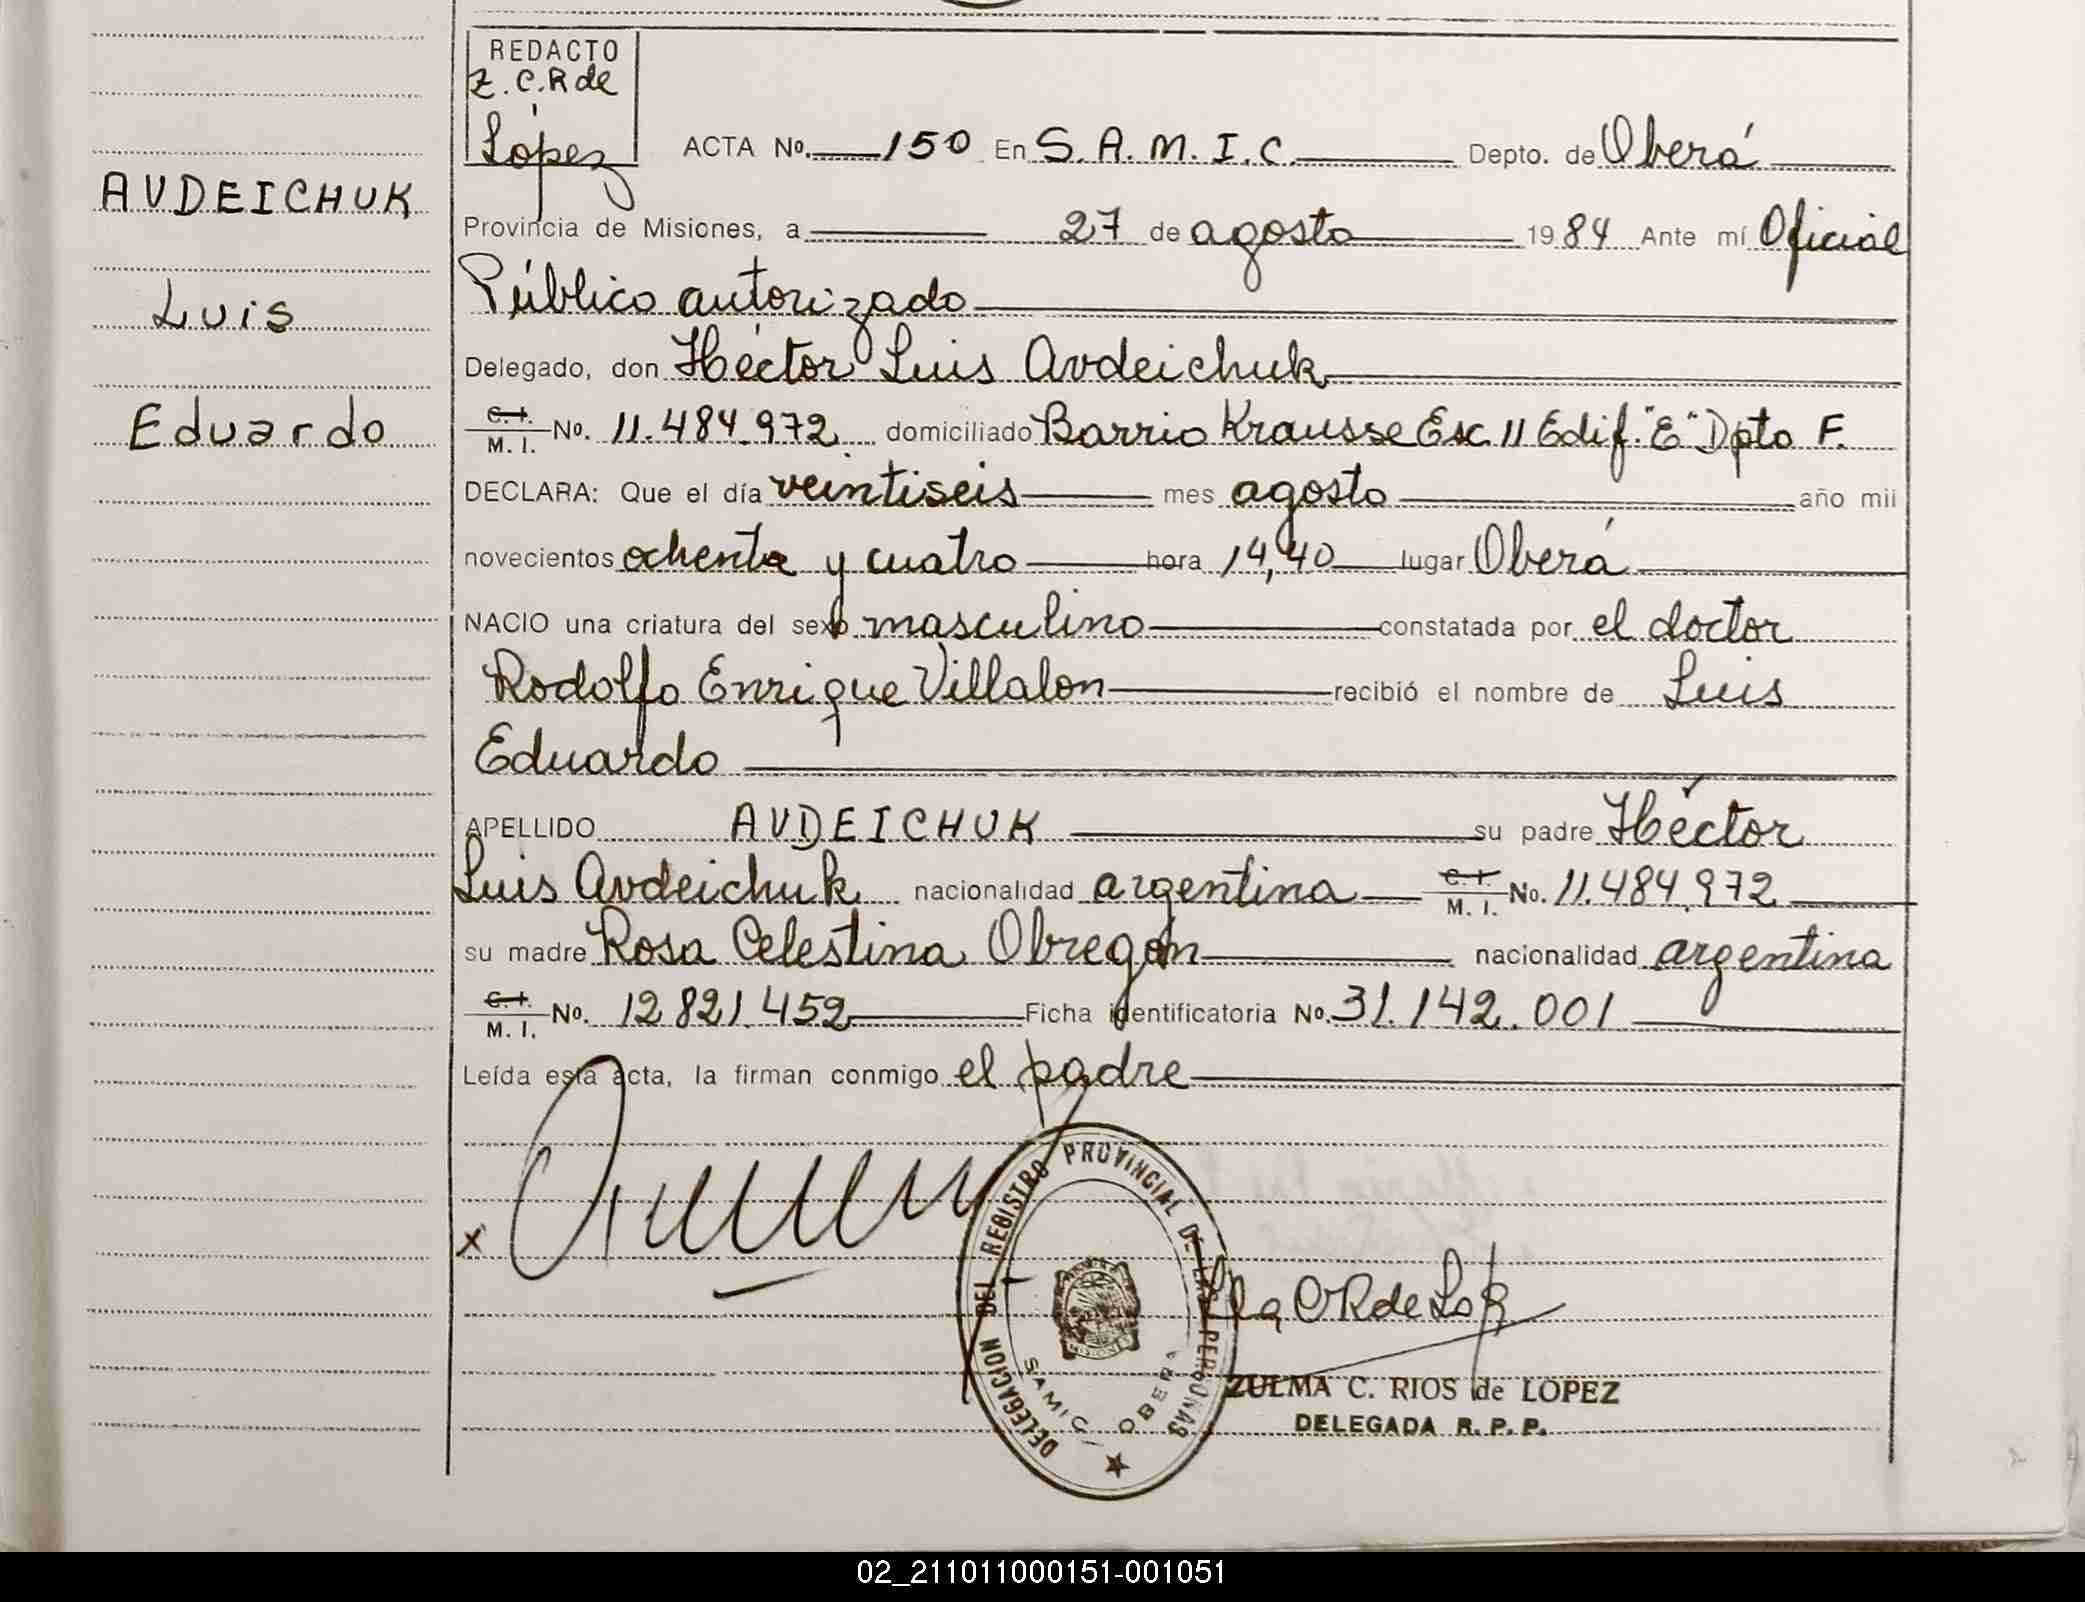 REDACTO
Z. C. R de
López
ACTA No. 150 En S. A. M. I. C. Depto. de Oberá
AVDEICHUK
Provincia de Misiones, a 27 de agosto 1984 Ante mí Oficial
Público autorizado
Luis
Delegado, don Héctor Luis Avdeichuk
Eduardo
C. I. / M. I. No. 11.484.972 domiciliado Barrio Krausse Esc 11 Edif. "E" Dpto F.
DECLARA: Que el día veintiseis mes agosto año mil
novecientos ochenta y cuatro hora 14,40 lugar Oberá
NACIO una criatura del sexo masculino constatada por el doctor
Rodolfo Enrique Villalon recibió el nombre de Luis
Eduardo
APELLIDO AVDEICHUK su padre Héctor
Luis Avdeichuk nacionalidad argentina C. I. / M. I. No. 11.484.972
su madre Rosa Celestina Obregón nacionalidad argentina
C. I. / M. I. No. 12.821.452 Ficha identificatoria No. 31.142.001
Leída esta acta, la firman conmigo el padre
x
DELEGACION DEL REGISTRO PROVINCIAL DE LAS PERSONAS
SAMIC - OBERA
MISIONES
ZULMA C. RIOS de LOPEZ
DELEGADA R. P. P.
02_211011000151-001051